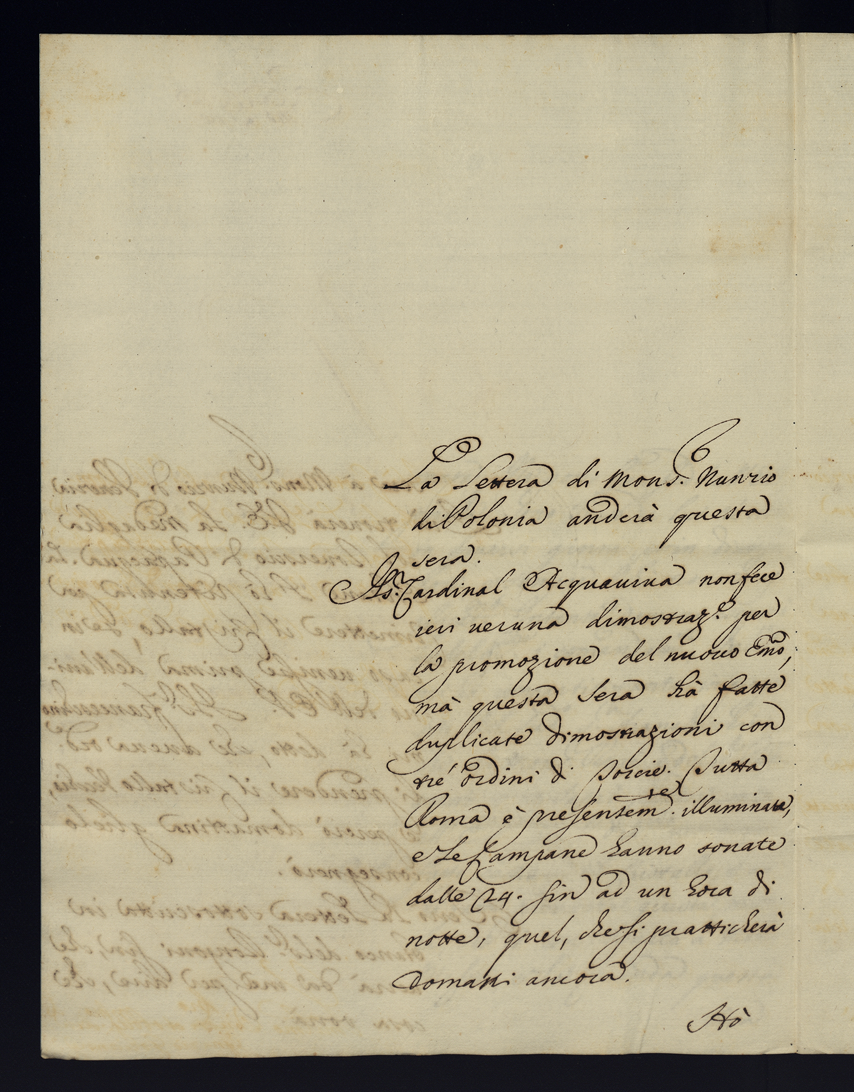 La Lettera di Mons.r Nunzio
di Polonia anderà questa
sera.
Il S.r Cardinal Acquaviva non fece
ieri veruna dimostraz.e per
la promozione del nuovo Emõ,
mà questa sera hà fatte
duplicate dimostrazioni con
trè ordini di torcie. Tutta
Roma è presentem.te illuminata,
e le Campane hanno sonate
dalle 24. sin ad un hora di
notte, quel, che si pratticherà
domatti ancora.
Hò